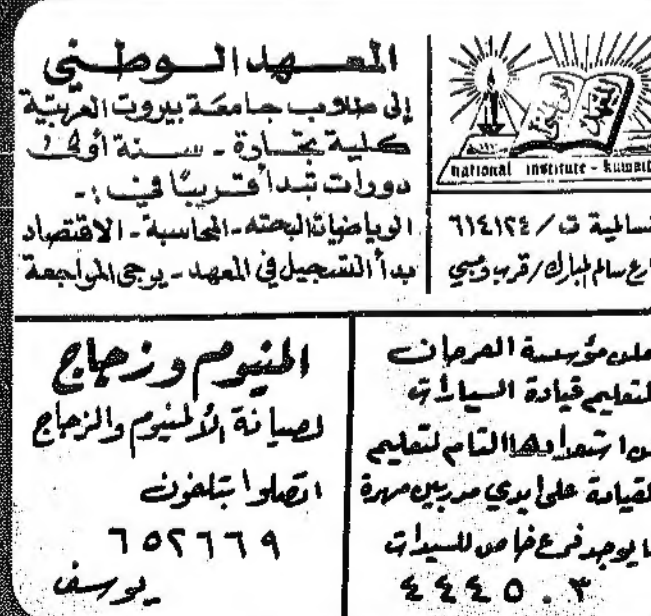 المعهد الوطني
إلى طلاب جامعة بيروت العربية
كلية تجارة - سنة أولى
دورات تبدأ قريبًا في :-
الرياضيات البحته - المحاسبة - الاقتصاد
بدأ التسجيل في المعهد - يرجى المراجعة
national institute - kuwait
سالمية ت / ٦١٤١٢٤
ارع سالم المبارك / قرب
المنيوم وزجاج
لصيانة الألمنيوم والزجاج
اتصلوا بتلفون
٦٥٢٦٦٩
يوسف
علن مؤسسة المرجان
لتعليم قيادة السيارات
ن استعدادها التام لتعليم
لقيادة على ايدي مدربين مهرة
ما يوجد فرع خاص للسيدات
٤٤٤٥٠٣